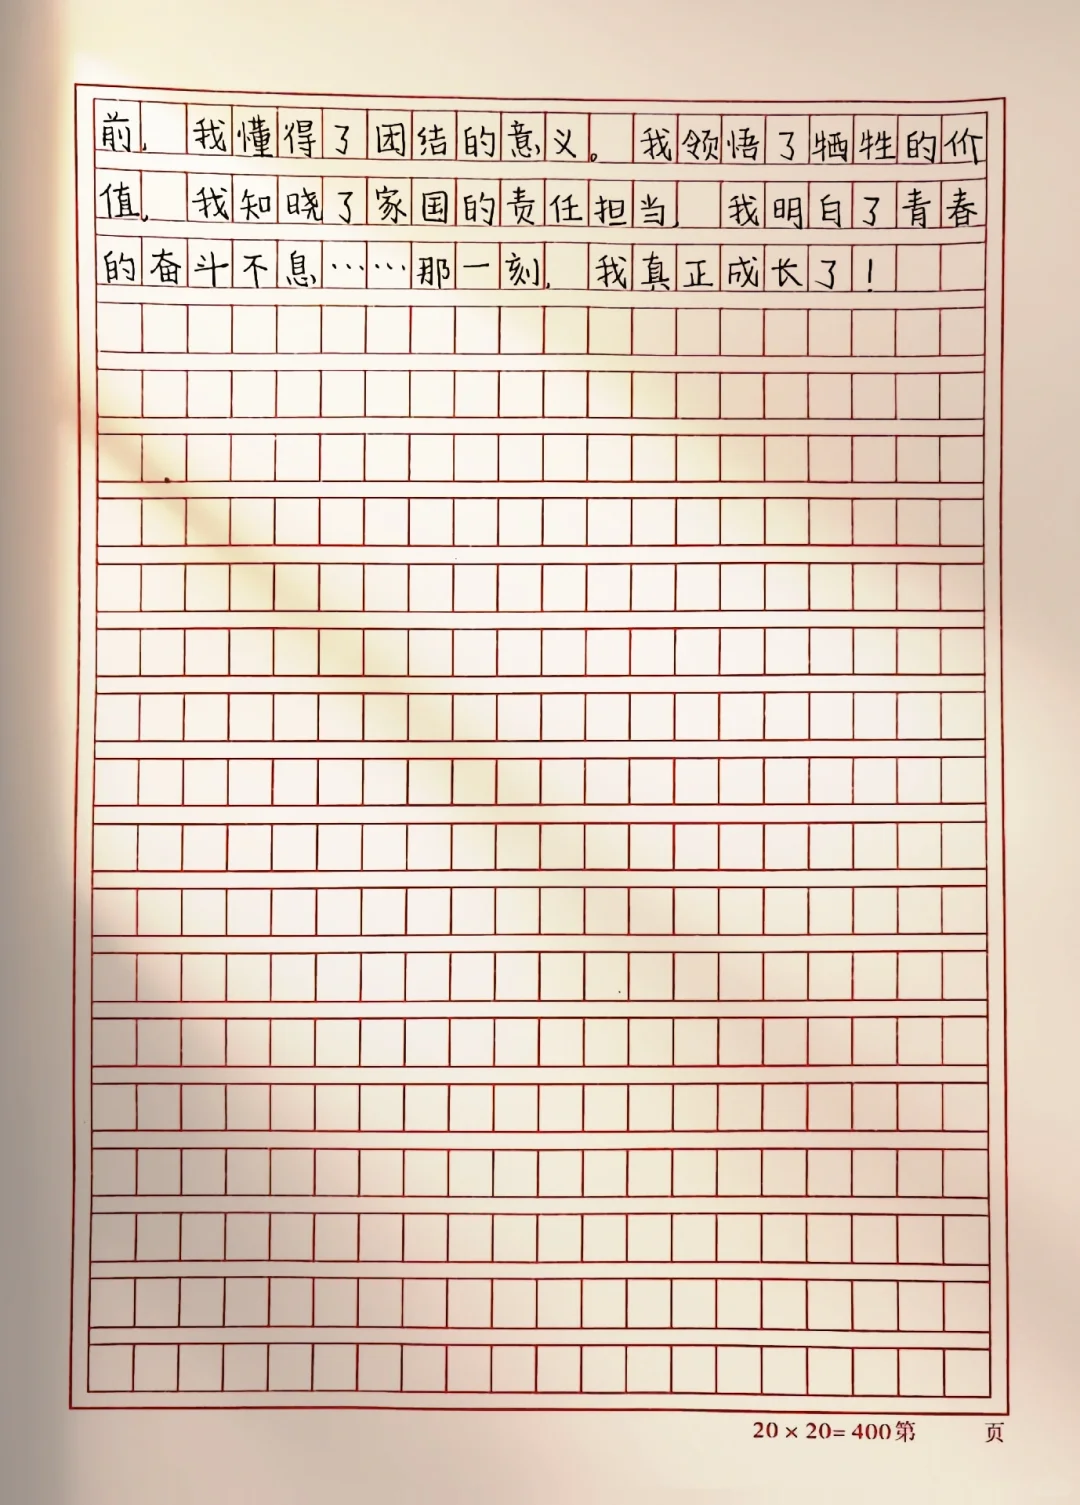 前，我懂得了团结的意义。我领悟了牺牲的价
值，我知晓了家国的责任担当，我明白了青春
的奋斗不息……那一刻，我真正成长了！
20×20=400第 页